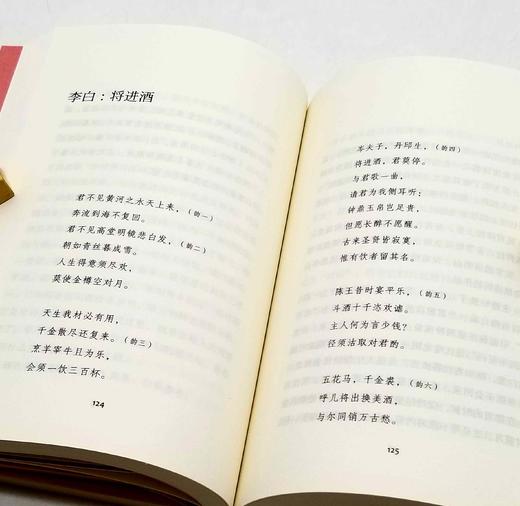 李白：将进酒
君不见黄河之水天上来，（韵一）
奔流到海不复回。
君不见高堂明镜悲白发，（韵二）
朝如青丝暮成雪。
人生得意须尽欢，
莫使金樽空对月。
天生我材必有用，
千金散尽还复来。（韵三）
烹羊宰牛且为乐，
会须一饮三百杯。
124
岑夫子，丹邱生，（韵四）
将进酒，君莫停。
与君歌一曲，
请君为我侧耳听：
钟鼎玉帛岂足贵，
但愿长醉不愿醒。
古来圣贤皆寂寞，
惟有饮者留其名。
陈王昔时宴平乐，（韵五）
斗酒十千恣欢谑。
主人何为言少钱？
径须沽取对君酌。
五花马，千金裘，（韵六）
呼儿将出换美酒，
与尔同销万古愁。
125